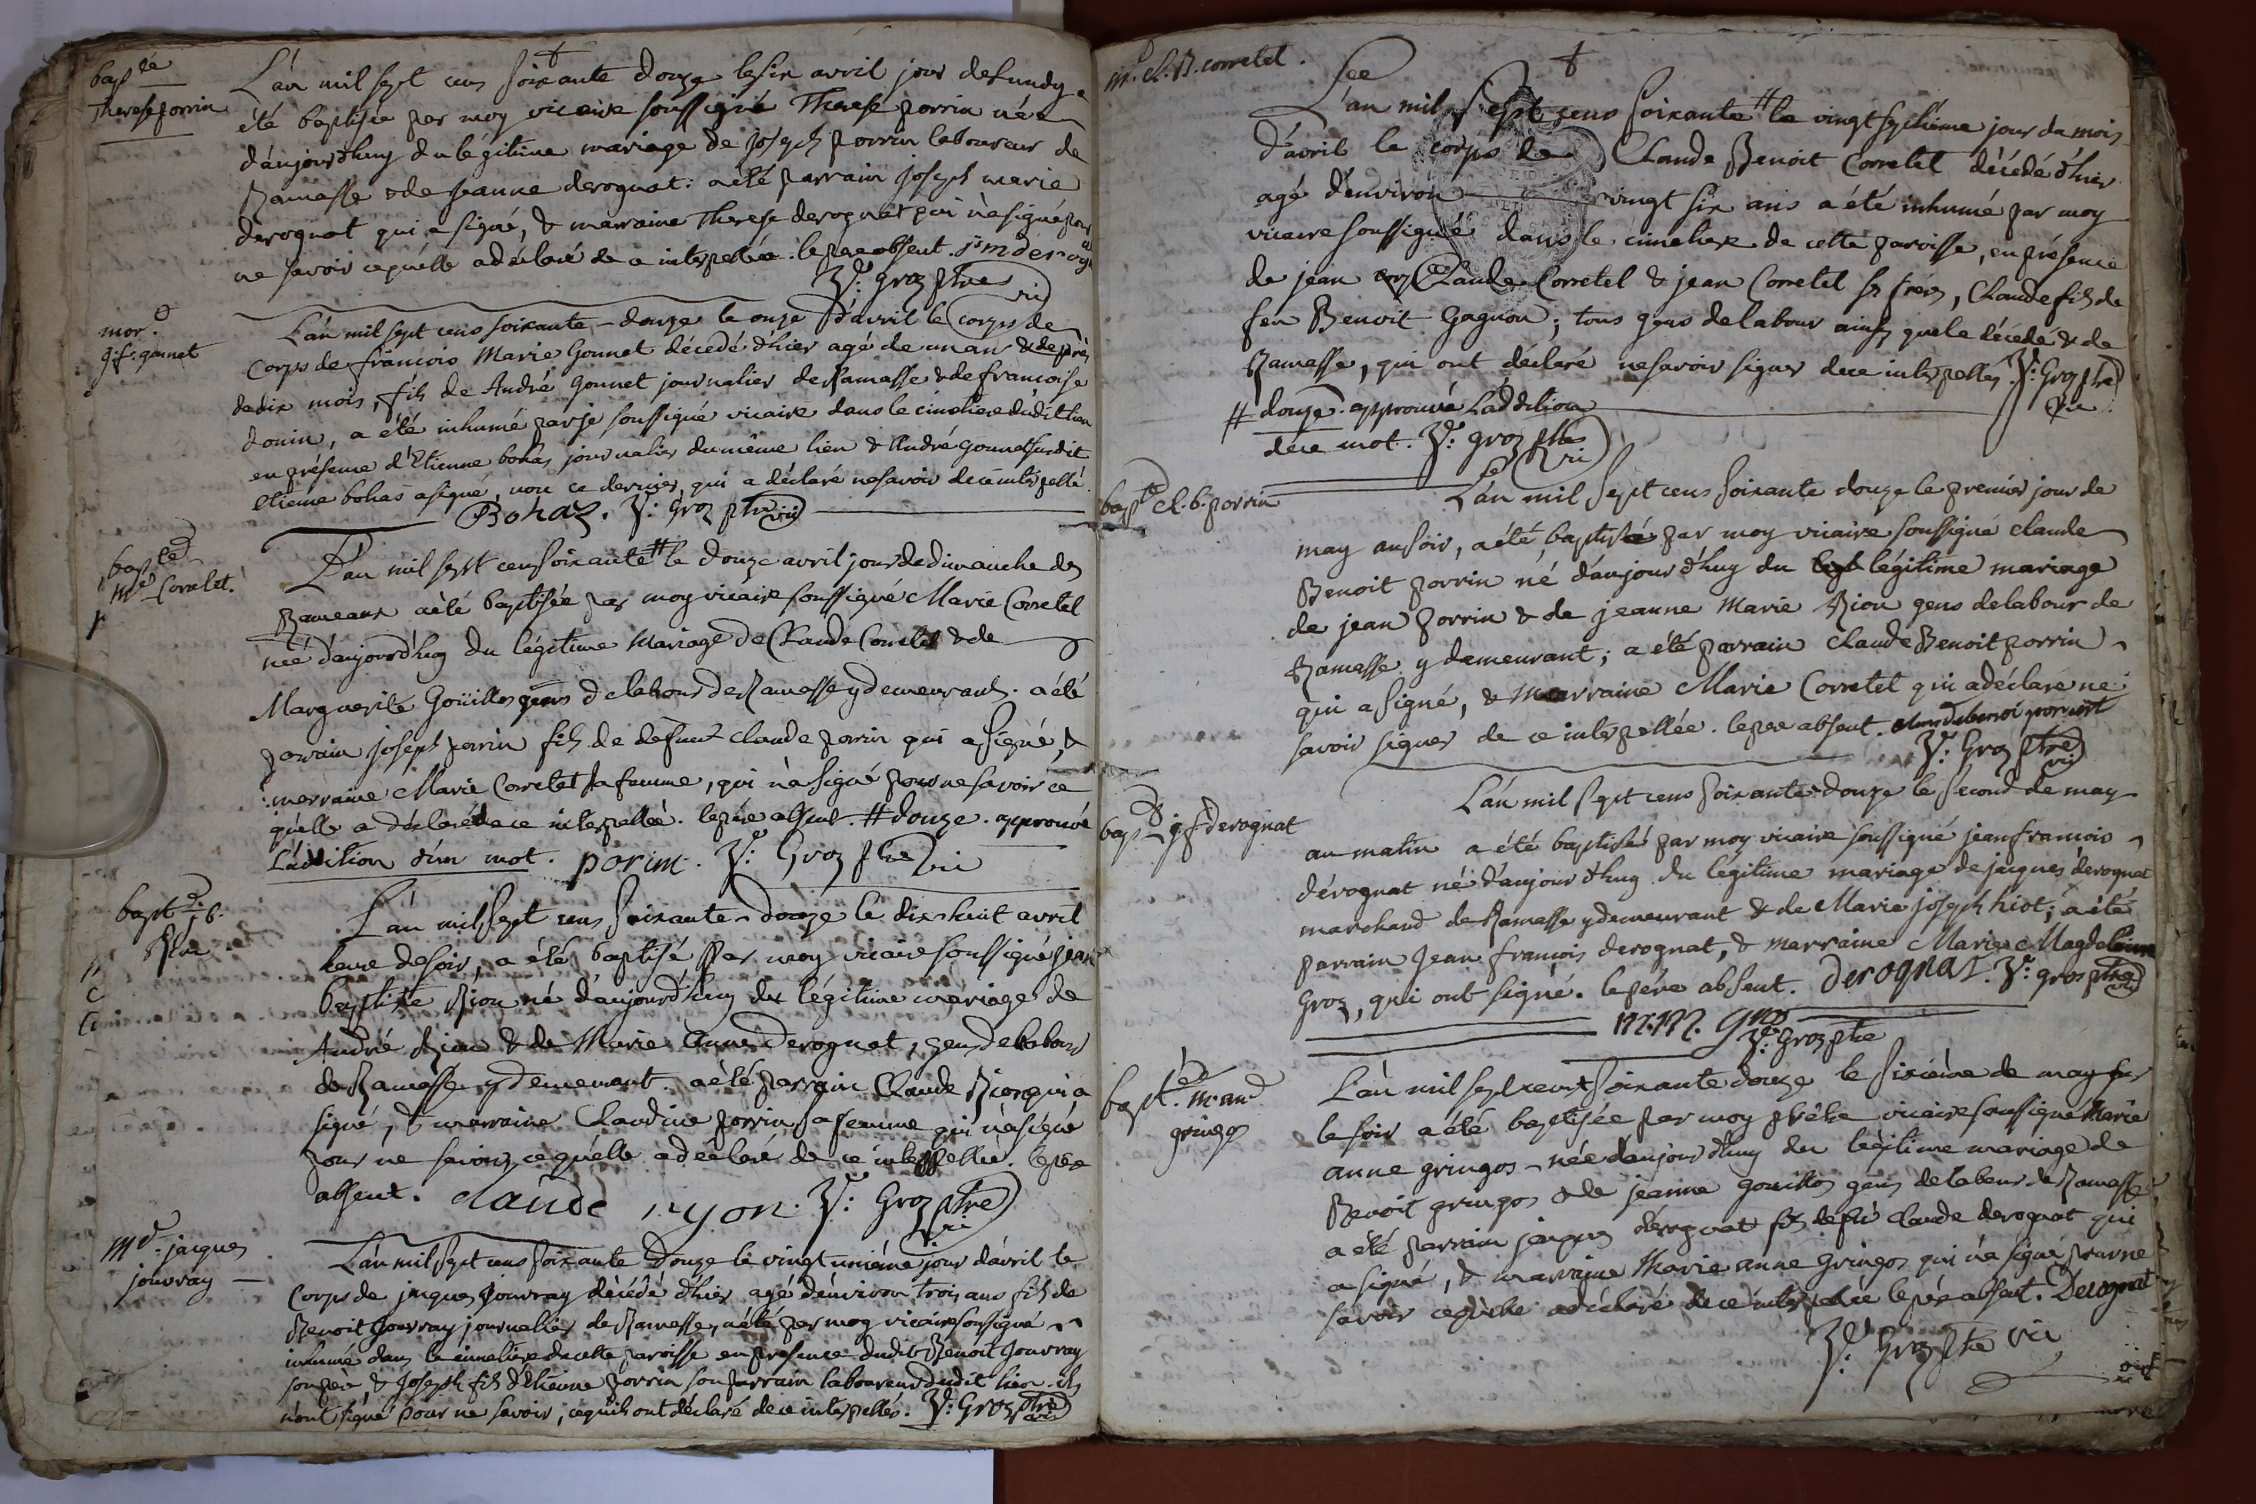 bap.té
Therese porrin
L'an mil sept cens soixante douze le six avril jour de lundy a
été baptisée par moy vicaire soussigné Therese porrin née
d'aujourdhuy du légitime mariage de Joseph porrin laboureur de
Ramasse & de jeanne derognat: a été parrain joseph marie
derognat qui a signé, & marraine Therese derognat qui n'a signé pour
ne savoir ce qu'elle a déclaré de ce interpellée. le père absent.
V: Groz ptre vic
mor.
f. gonnet
L'an mil sept cens soixante - douze le onze d'avril le corps de
Corps de francois Marie Gonnet décedé d'hier agé de un an & de près
de dix mois, fils de André gonnet journalier de Ramasse & de francoise
donin, a été inhumé par je soussigné vicaire dans le cimetiere dudit lieu
en présence d'Etienne bohas journalier du même lien & André gonnet susdit
etienne bohas a signé, non ce dernier, qui a déclaré ne savoir de ce interpellé.
Bohaz. V: Groz ptre vic
bap.te
M.e Corretet.
L'an mil sept cens soixante # le douze avril jour de dimanche des
Rameaux a été baptisée par moy vicaire soussigné Marie Corretet
née d'aujourdhuy du légitime mariage de Claude Corretet & de
Marguerite Goüillos gens de labour de Ramasse y demeurants. a été
parrain joseph porrin fils de defunt claude porrin qui a signé, &
marraine Marie Corretet sa femme, qui n'a signé pour ne savoir ce
qu'elle a déclaré de ce interpellée. le père absent. # douze. approuvé
L'addition d'un mot. porim. V: Groz ptre vic
bapt. j. b.
Rion
L'an mil sept cens soixante - douze le dix huit avril
heure de soir, a été baptisé par moy vicaire soussigné jean
baptiste Rion né d'aujourdhuy du légitime mariage de
André Rion & de Marie Anne derognat, gens de labour
de Ramasse y demeurant. a été parrain Claude Rion qui a
signé, & marraine Claudine porrin sa femme qui n'a signé
pour ne savoir, ce qu'elle a déclaré de ce interpellée. le père
absent. claude ryon. V: Groz ptre vic
M.d jacques
jouvray
L'an mil sept cens soixante douze le vingt unième jour d'avril le
Corps de jacques jouvray décédé d'hier agé d'environ trois ans fils de
Benoit Jouvray journalier de Ramasse, a été par moy vicaire soussigné
inhumé dans le cimetiere de cette paroisse en présence dudit Benoit Jouvray
son père & Joseph fils d'Etienne porrin son parrain laboureur dudit lieu. ils
n'ont signé pour ne savoir, ce qu'ils ont déclaré de ce interpellés. V: Groz ptre vic
m.d cl. B. corretet.
L'an mil sept cens soixante # le vingt septième jour du mois
d'avril le corps de Claude Benoit Corretet décédé d'hier
agé d'environ vingt six ans a été inhumé par moy
vicaire soussigné dans le cimetiere de cette paroisse, en présence
de jean Claude Corretet & jean Corretet ses frères, Claude fils de
feu Benoit Gagnon; tous gens de labour ainsy que le décédé & de
Ramasse, qui ont déclaré ne savoir signer de ce interpellés. V: Groz ptre
vic
# douze. approuvé L'addition
de ce mot. V: groz ptre vic
bap.te cl. b. porrin
L'an mil sept cens soixante douze le premier jour de
may au soir, a été baptisé par moy vicaire soussigné claude
Benoit porrin né d'aujourdhuy du légitime mariage
de jean porrin & de jeanne Marie Rion gens de labour de
Ramasse y demeurant; a été parrain Claude Benoit porrin
qui a signé, & marraine Marie Corretet qui a déclaré ne
savoir signer de ce interpellée. le père absent.
V: Groz ptre vic
bap. j f derognat
L'an mil sept cens soixante douze le second de may
au matin a été baptisé par moy vicaire soussigné jean francois
dérognat né d'aujourdhuy du légitime mariage de jacques dérognat
marchand de Ramasse y demeurant & de Marie joseph hiot; a été
parrain Jean francois derognat, & marraine Marie Magdelaine
Groz, qui ont signé. le père absent. derognat. V: groz ptre vic
m. m. groz
V: Groz ptre
bapt. m. an
gringoz
L'an mil sept cent soixante douze le sixième de may
le soir a été baptisée par moy prêtre vicaire soussigné Marie
anne gringos née d'aujourdhuy du légitime mariage de
Benoit gringos & de jeanne gouillos gens de labour de Ramasse
a été parrain jacques dérognat fils de feu Claude derognat qui
a signé, & marraine Marie anne Gringos qui n'a signé pour ne
savoir ce qu'elle a déclaré de ce interpellée le père absent. Derognat
V: Groz Ptre vic